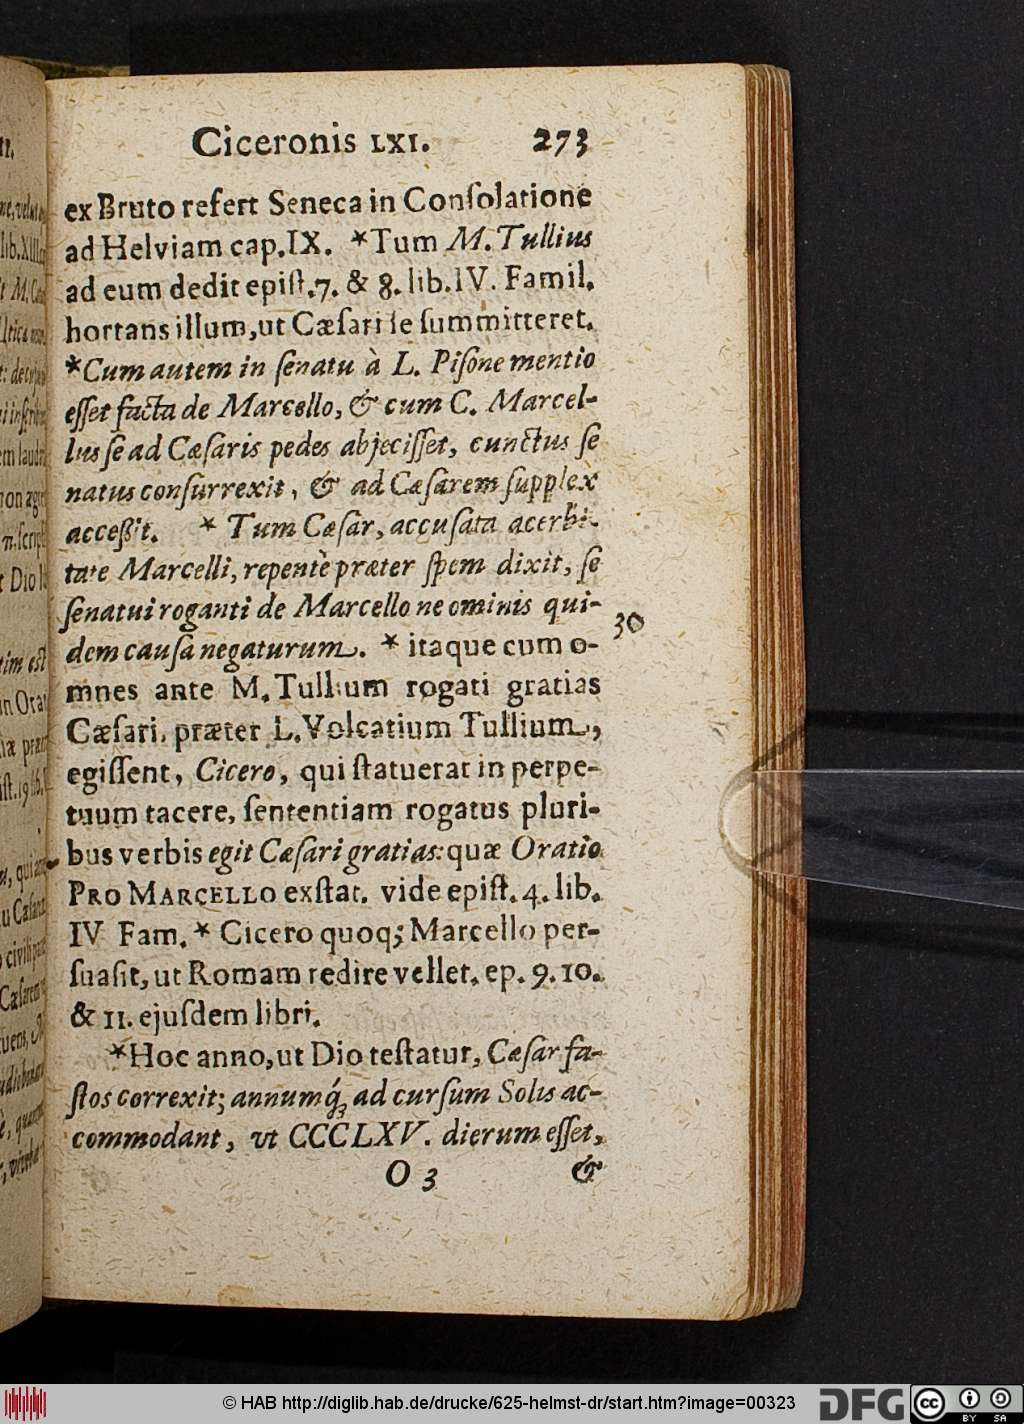 Ciceronis LXI. 273
ex Bruto refert Seneca in Conſolatione
ad Helviam cap.IX. *Tum M. Tullius
ad eum dedit epiſt.7. & 8. lib.IV. Famil.
hortans illum, ut Cæſari ſe ſummitteret.
*Cum autem in ſenatu à L. Piſone mentio
eſſet facta de Marcello, & cum C. Marcel-
lus ſe ad Cæſaris pedes abjeciſſet, cunctus ſe
natus conſurrexit, & ad Cæſarem ſupplex
acceßit. * Tum Cæſar, accuſata acerbi-
tate Marcelli, repentè præter ſpem dixit, ſe
ſenatui roganti de Marcello ne ominis qui-
30
dem cauſa negaturum. * itaque cum o-
mnes ante M. Tullium rogati gratias
Cæſari, præter L. Volcatium Tullium,
egiſſent, Cicero, qui ſtatuerat in perpe-
tuum tacere, ſententiam rogatus pluri-
bus verbis egit Cæſari gratias: quæ Oratio
PRO MARCELLO exſtat. vide epiſt. 4. lib.
IV Fam. * Cicero quoq; Marcello per-
ſuaſit, ut Romam redire vellet. ep. 9. 10.
& 11. ejuſdem libri.
*Hoc anno, ut Dio teſtatur, Cæſar fa-
ſtos correxit; annumq́; ad curſum Solis ac-
commodant, vt CCCLXV. dierum eſſet,
O 3 &
© HAB http://diglib.hab.de/drucke/625-helmst-dr/start.htm?image=00323
DFG
cc
BY SA